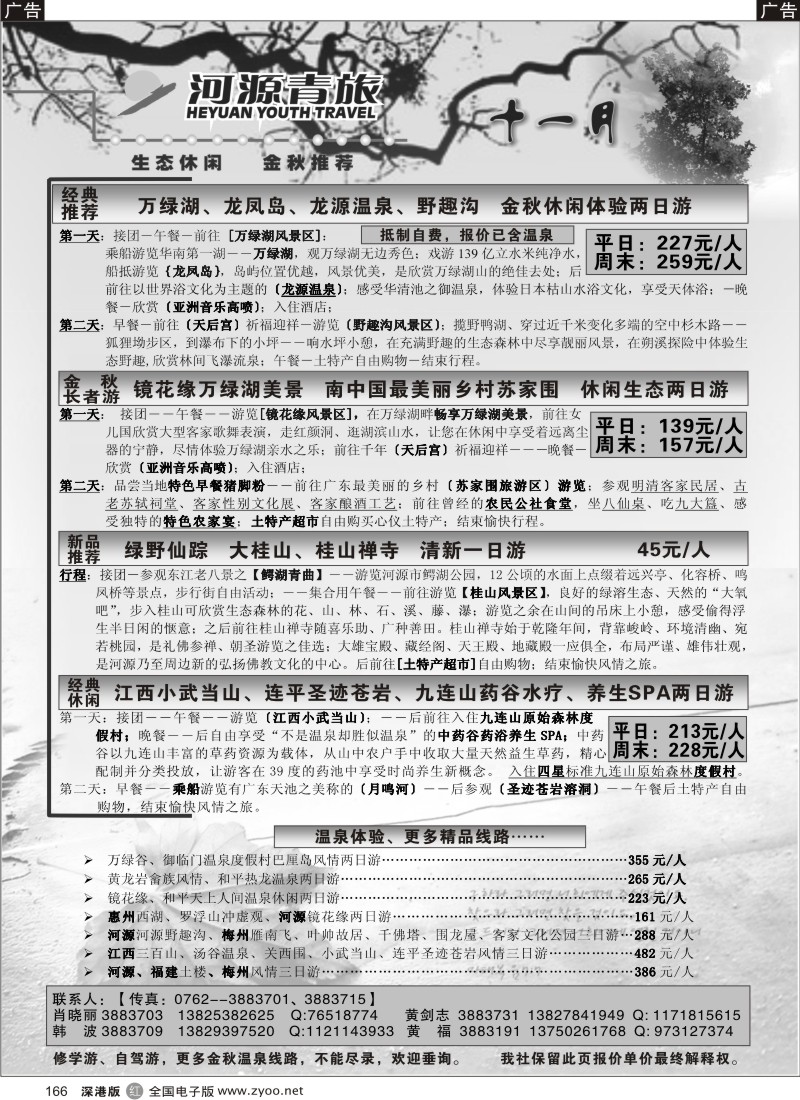 广告
广告
河源青旅
HEYUAN YOUTH TRAVEL
十一月
生态休闲 金秋推荐
经典推荐 万绿湖、龙凤岛、龙源温泉、野趣沟 金秋休闲体验两日游
第一天：接团－午餐－前往 [万绿湖风景区]：
抵制自费，报价已含温泉
平日：227元/人
周末：259元/人
乘船游览华南第一湖－－万绿湖，观万绿湖无边秀色；戏游 139 亿立水米纯净水，
船抵游览 {龙凤岛}，岛屿位置优越，风景优美，是欣赏万绿湖山的绝佳去处；后
前往以世界浴文化为主题的〔龙源温泉〕；感受华清池之御温泉，体验日本枯山水浴文化，享受天体浴；－晚
餐－欣赏〔亚洲音乐高喷〕；入住酒店；
第二天：早餐－前往〔天后宫〕祈福迎祥－游览〔野趣沟风景区〕；揽野鸭湖、穿过近千米变化多端的空中杉木路－－
狐狸坳步区，到瀑布下的小坪－－响水坪小憩，在充满野趣的生态森林中尽享靓丽风景，在朔溪探险中体验生
态野趣,欣赏林间飞瀑流泉；午餐－土特产自由购物－结束行程。
金秋长者游 镜花缘万绿湖美景 南中国最美丽乡村苏家围 休闲生态两日游
第一天： 接团－－午餐－－游览[镜花缘风景区]，在万绿湖畔畅享万绿湖美景，前往女
平日：139元/人
周末：157元/人
儿国欣赏大型客家歌舞表演，走红颜洞、逛湖滨山水，让您在休闲中享受着远离尘
器的宁静，尽情体验万绿湖亲水之乐；前往千年〔天后宫〕祈福迎祥－－－晚餐－
欣赏〔亚洲音乐高喷〕；入住酒店；
第二天：品尝当地特色早餐猪脚粉－－前往广东最美丽的乡村〔苏家围旅游区〕游览；参观明清客家民居、古
老苏轼祠堂、客家性别文化展、客家酿酒工艺；前往曾经的农民公社食堂，坐八仙桌、吃九大簋、感
受独特的特色农家宴；土特产超市自由购买心仪土特产；结束愉快行程。
新品推荐 绿野仙踪 大桂山、桂山禅寺 清新一日游 45元/人
行程：接团－参观东江老八景之【鳄湖青曲】－－游览河源市鳄湖公园，12 公顷的水面上点缀着远兴亭、化容桥、鸣
凤桥等景点，步行街自由活动；－－集合用午餐－－前往游览【桂山风景区】，良好的绿溶生态、天然的“大氧
吧”，步入桂山可欣赏生态森林的花、山、林、石、溪、藤、瀑；游览之余在山间的吊床上小憩，感受偷得浮
生半日闲的惬意；之后前往桂山禅寺随喜乐助、广种善田。桂山禅寺始于乾隆年间，背靠峻岭、环境清幽、宛
若桃园，是礼佛参禅、朝圣游览之佳选；大雄宝殿、藏经阁、天王殿、地藏殿一应俱全，布局严谨、雄伟壮观，
是河源乃至周边新的弘扬佛教文化的中心。后前往[土特产超市]自由购物；结束愉快风情之旅。
经典休闲 江西小武当山、连平圣迹苍岩、九连山药谷水疗、养生SPA两日游
第一天：接团－－午餐－－游览〔江西小武当山〕；－－后前往入住九连山原始森林度
平日：213元/人
周末：228元/人
假村；晚餐－－后自由享受“不是温泉却胜似温泉”的中药谷药浴养生 SPA；中药
谷以九连山丰富的草药资源为载体，从山中农户手中收取大量天然益生草药，精心
配制并分类投放，让游客在 39 度的药池中享受时尚养生新概念。 入住四星标准九连山原始森林度假村。
第二天：早餐－－乘船游览有广东天池之美称的〔月鸣河〕－－后参观〔圣迹苍岩溶洞〕－－午餐后土特产自由
购物，结束愉快风情之旅。
温泉体验、更多精品线路……
➢ 万绿谷、御临门温泉度假村巴厘岛风情两日游……355 元/人
➢ 黄龙岩畲族风情、和平热龙温泉两日游……265 元/人
➢ 镜花缘、和平天上人间温泉休闲两日游……223 元/人
➢ 惠州西湖、罗浮山冲虚观、河源镜花缘两日游……161 元/人
➢ 河源河源野趣沟、梅州雁南飞、叶帅故居、千佛塔、围龙屋、客家文化公园三日游…288 元/人
➢ 江西三百山、汤谷温泉、关西围、小武当山、连平圣迹苍岩风情三日游……482 元/人
➢ 河源、福建土楼、梅州风情三日游……386 元/人
联系人：【 传真：0762--3883701、3883715】
肖晓丽 3883703 13825382625 Q:76518774 黄剑志 3883731 13827841949 Q: 1171815615
韩 波 3883709 13829397520 Q:1121143933 黄 福 3883191 13750261768 Q: 973127374
修学游、自驾游，更多金秋温泉线路，不能尽录，欢迎垂询。 我社保留此页报价单价最终解释权。
166 深港版 红 全国电子版 www.zyoo.net